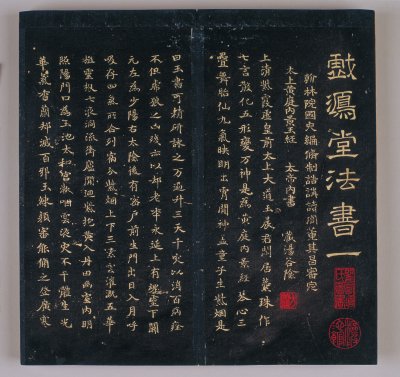 戲鴻堂法書一
翰林院國史編脩制誥講讀官董其昌審定
太上黃庭內景玉經
太帝內書
上清紫霞虛皇前太上大道玉晨君閒居蕊珠作
七言散化五形變萬神是為黃庭內景經琴心三
疊舞胎仙九氣映明出霄間神蓋童子生紫烟是
曰玉書可精研詠之萬過升三天千災以消百病痊
不但虎狼之凶殘亦以却老年永延上有魂靈下關
元左為少陽右太陰後有密戶前生門出日入月呼
吸存四氣所合列宿分紫烟上下三素雲灌溉五華
植靈根七液洞流衝廬間迴紫抱黃入丹田幽室內明
照陽門口為玉池太和官漱咽靈液災不干體生光
華氣香蘭却滅百邪玉鍊顏審能脩之登廣寒